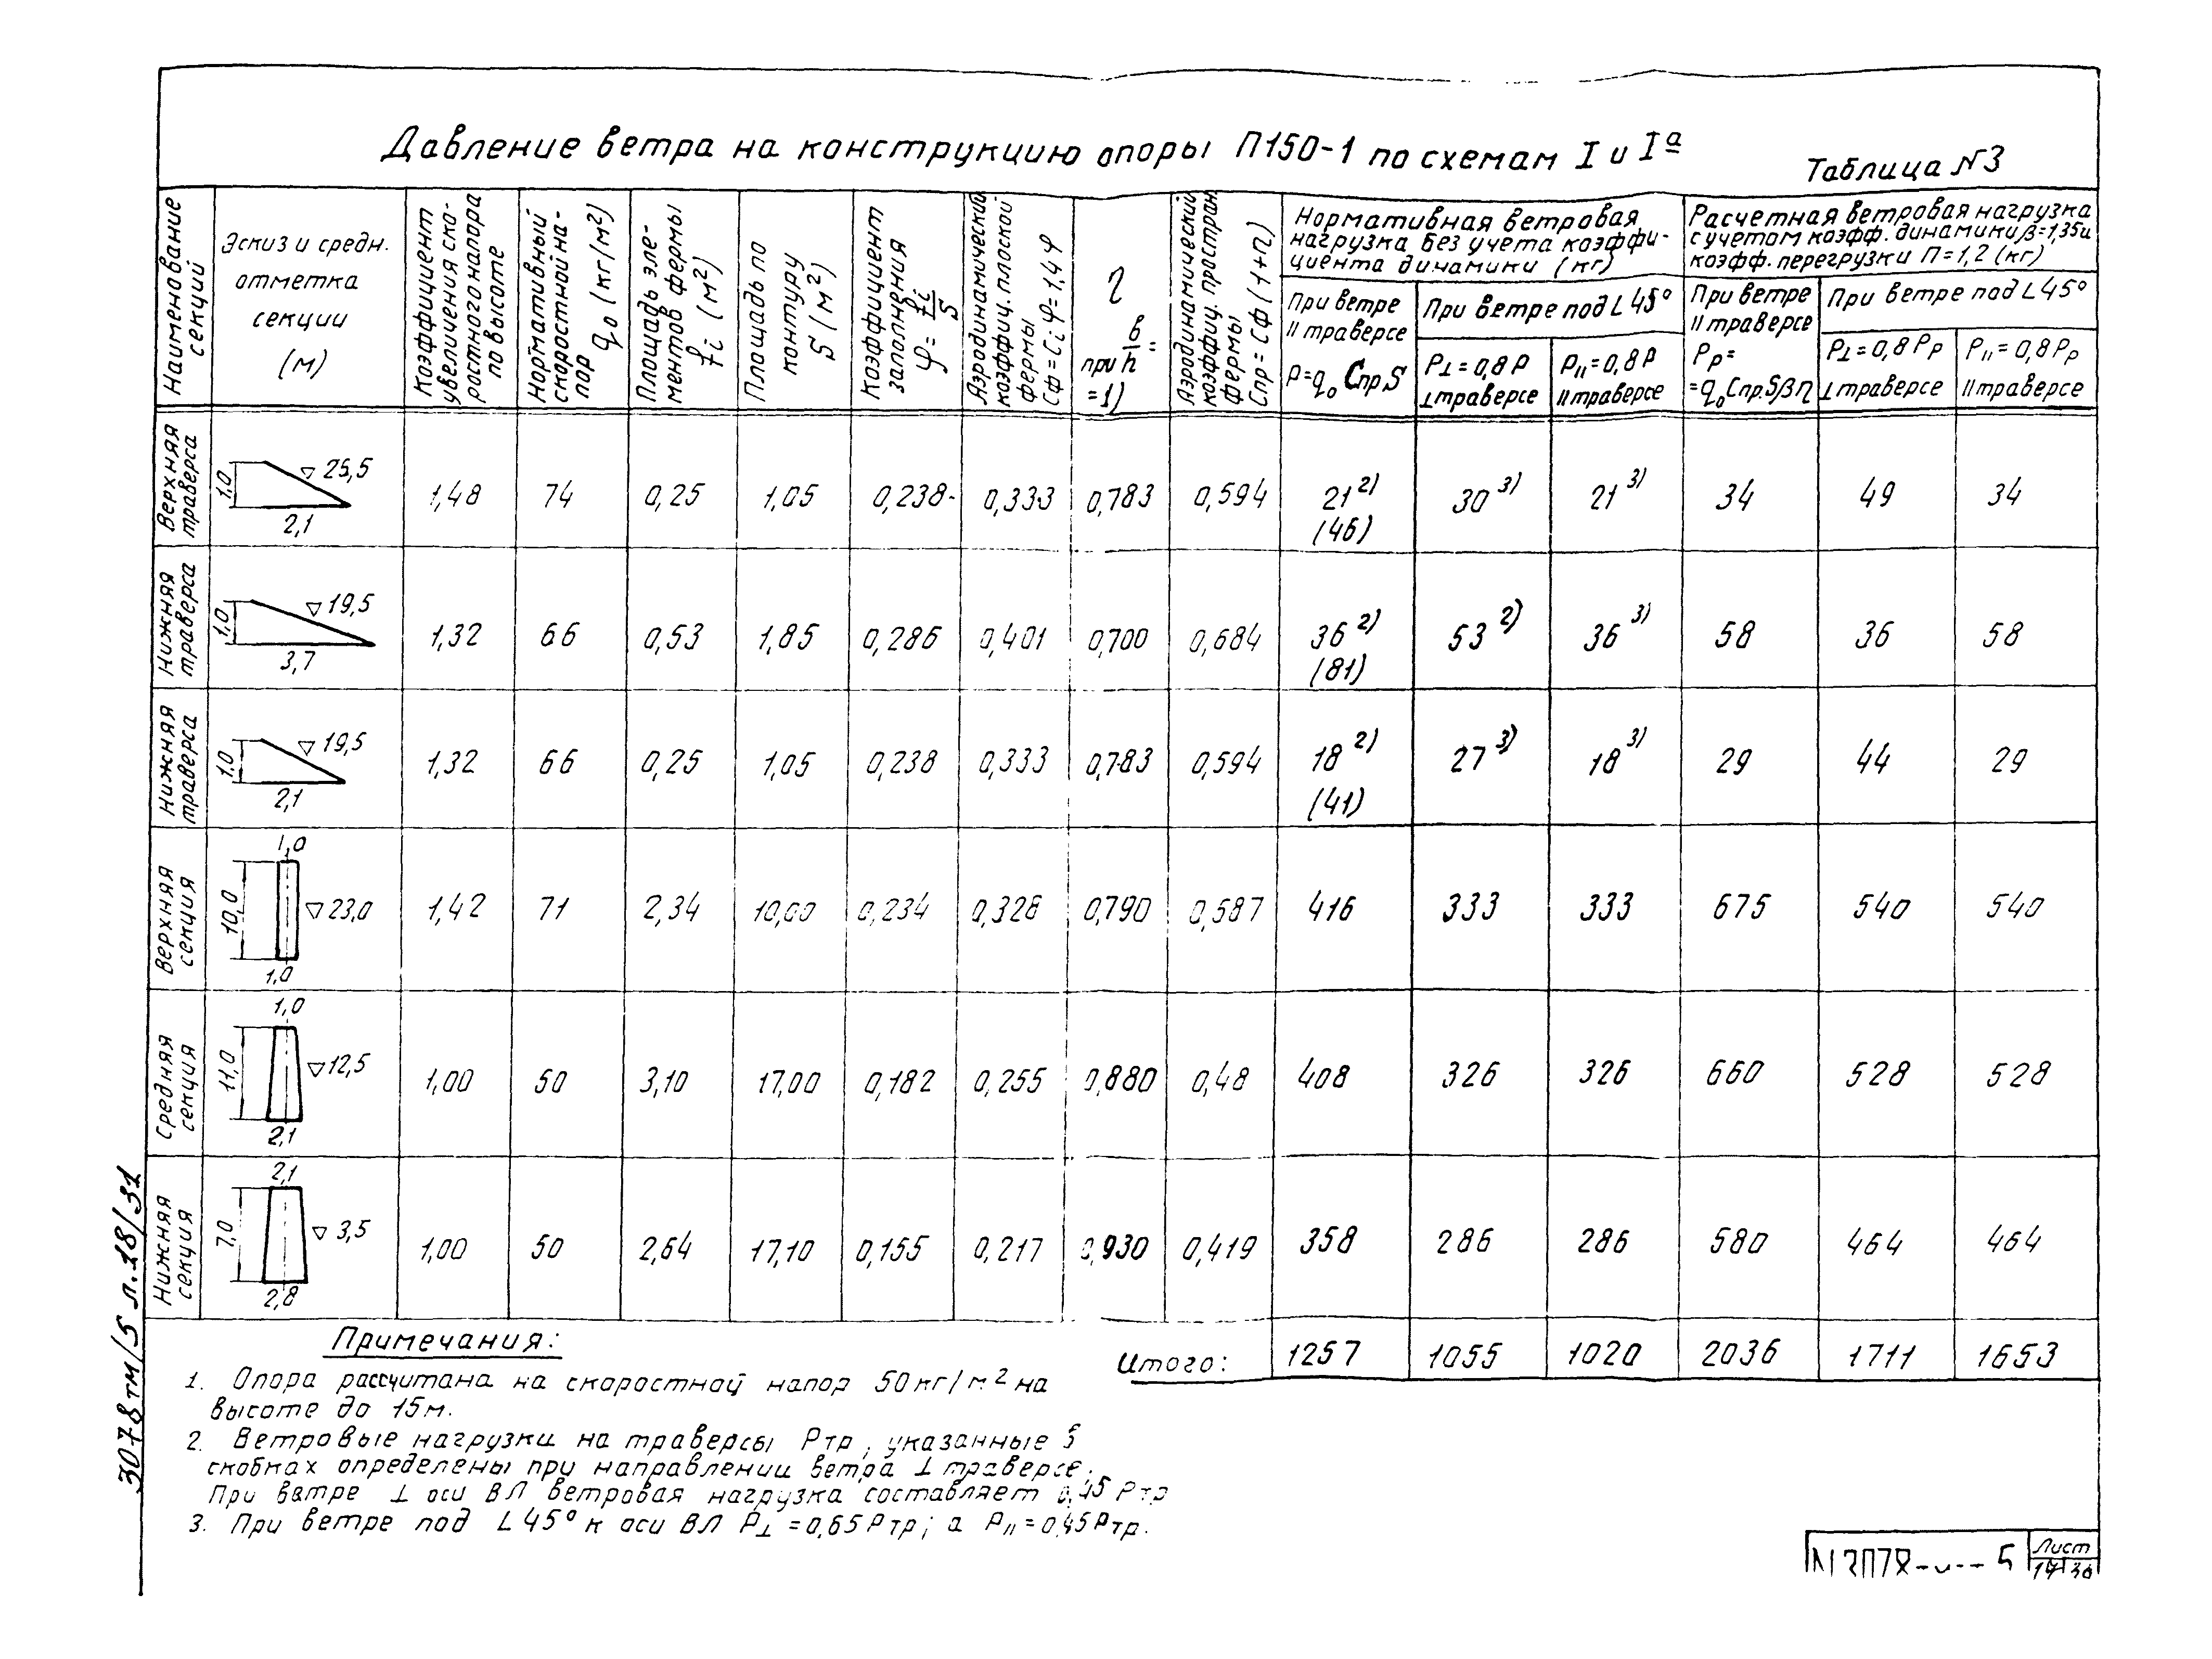 Давление ветра на конструкцию опоры П150-1 по схемам I и Iª
Таблица N3
Наименование секций
Эскиз и средн. отметка секции (м)
Коэффициент увеличения скоростного напора по высоте
Нормативный скоростной напор q₀ (кг/м²)
Площадь элементов фермы fi (м²)
Площадь по контуру S (м²)
Коэффициент заполнения φ = fi/S
Аэродинамический коэффиц. плоской фермы Cф = Ci φ = 1,4 φ
η при b/h = =1)
Аэродинамический коэффиц. простран. фермы Спр = Сф (1+η)
Нормативная ветровая нагрузка без учета коэффициента динамики (кг)
При ветре II траверсе
P = q₀ Спр S
При ветре под L 45°
P⊥ = 0,8 P
⊥ траверсе
P// = 0,8 P
II траверсе
Расчетная ветровая нагрузка с учетом коэфф. динамики β = 1,35 и коэфф. перегрузки П = 1,2 (кг)
При ветре II траверсе
Pр =
= q₀ Спр. S β η
При ветре под L 45°
P⊥ = 0,8 Pр
⊥ траверсе
P// = 0,8 Pр
II траверсе
Верхняя траверса 1,0 ▽ 25,5 2,1 1,48 74 0,25 1,05 0,238 0,333 0,783 0,594 21 2) (46) 30 3) 21 3) 34 49 34
Нижняя траверса 1,0 ▽ 19,5 3,7 1,32 66 0,53 1,85 0,286 0,401 0,700 0,684 36 2) (81) 53 2) 36 3) 58 36 58
Нижняя траверса 1,0 ▽ 19,5 2,1 1,32 66 0,25 1,05 0,238 0,333 0,783 0,594 18 2) (41) 27 3) 18 3) 29 44 29
Верхняя секция 1,0 10,0 ▽ 23,0 1,0 1,42 71 2,34 10,00 0,234 0,328 0,790 0,587 416 333 333 675 540 540
Средняя секция 1,0 11,0 ▽ 12,5 2,1 1,00 50 3,10 17,00 0,182 0,255 0,880 0,48 408 326 326 660 528 528
Нижняя секция 2,1 7,0 ▽ 3,5 2,8 1,00 50 2,64 17,10 0,155 0,217 0,930 0,419 358 286 286 580 464 464
Итого: 1257 1055 1020 2036 1711 1653
Примечания:
1. Опора рассчитана на скоростной напор 50 кг/м² на
высоте до 15 м.
2. Ветровые нагрузки на траверсы Ртр, указанные в
скобках определены при направлении ветра ⊥ траверсе.
При ветре ⊥ оси ВЛ ветровая нагрузка составляет 0,45 Ртр
3. При ветре под L 45° к оси ВЛ P⊥ = 0,65 Ртр; а P// = 0,45 Ртр.
3078тм/5 л.18/31
5
Лист